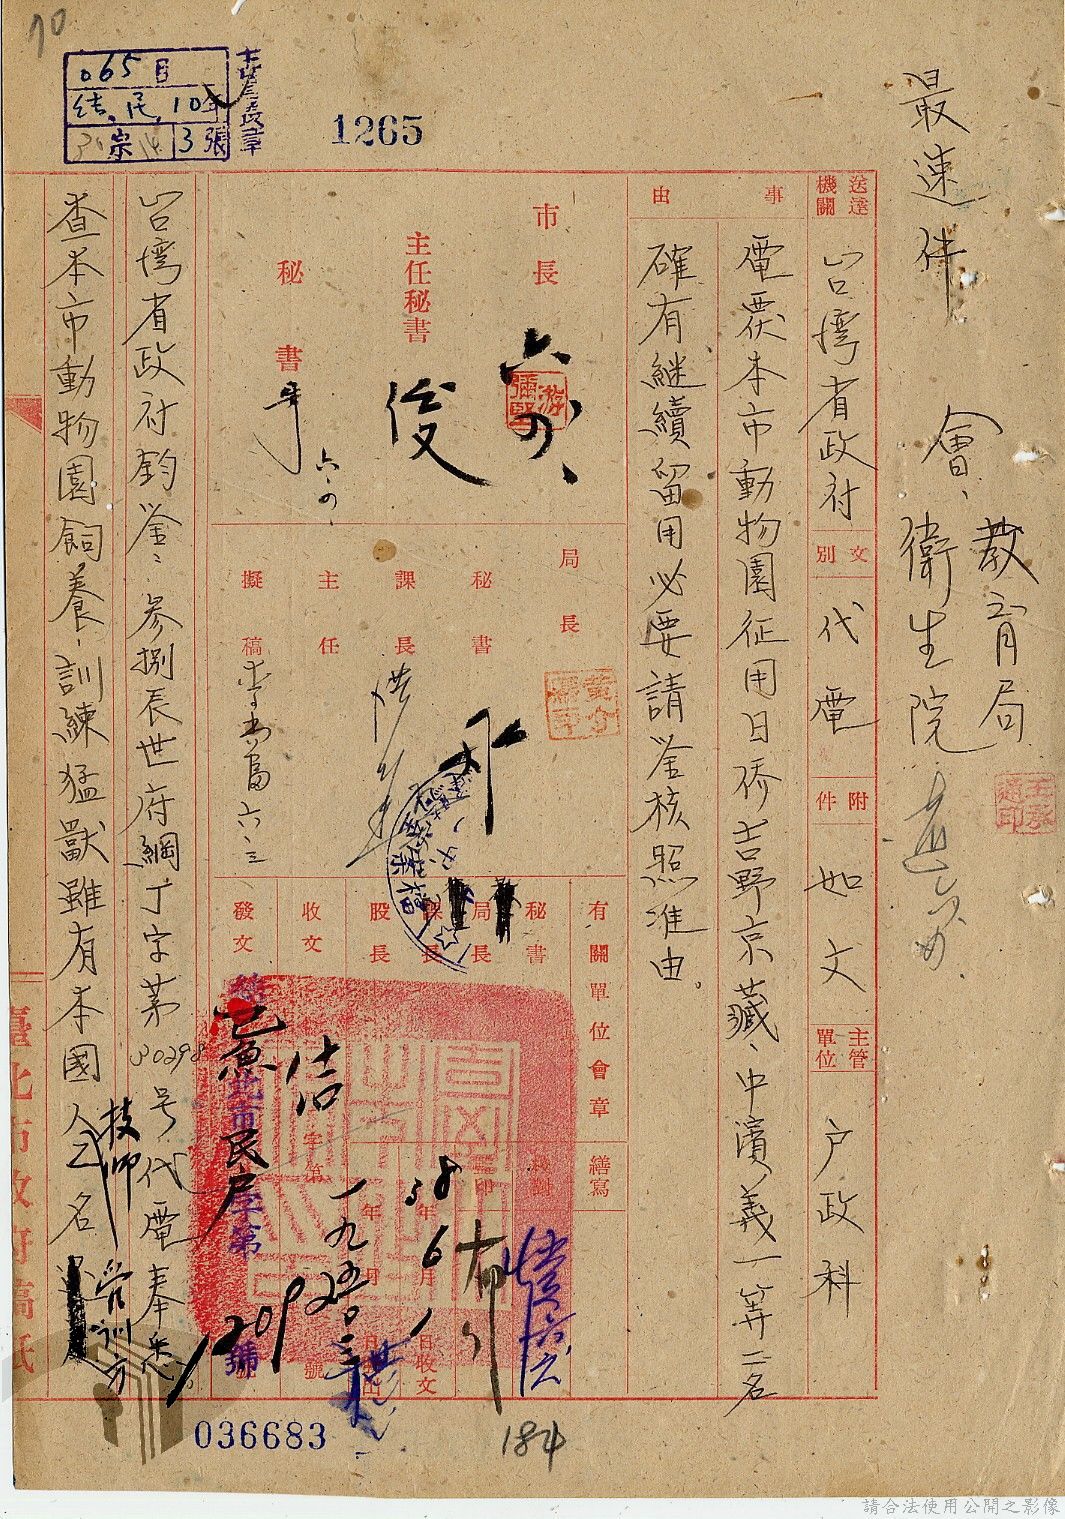 最速件
會、教育局
衛生院
王承通印
送達機關
台灣省政府
文別
代電
附件
如文
主管單位
户政科
事由
電覆本市動物園征用日侨吉野京藏、中濱義一等二名
確有継續留用必要請詧核照准由。
市長
六、四、
游彌堅
主任秘書
俊
秘書
六、四、
局長
秘書
課長
主任
擬稿
六、三
有關單位會章
秘書
局長
課長
股長
收文
發文
繕寫
校對
字第
號
一九五〇三
38年6月1日收文
北市
民户字第
1209
號
台灣省政府鈞詧：參捌辰世府綱丁字第30298号代電奉悉。
查本市動物園飼養、訓練猛獸雖有本國人技師乙名
臺北市政府稿紙
70
065目
結.民.10年
宗
3張
1265
036683
184
請合法使用公開之影像